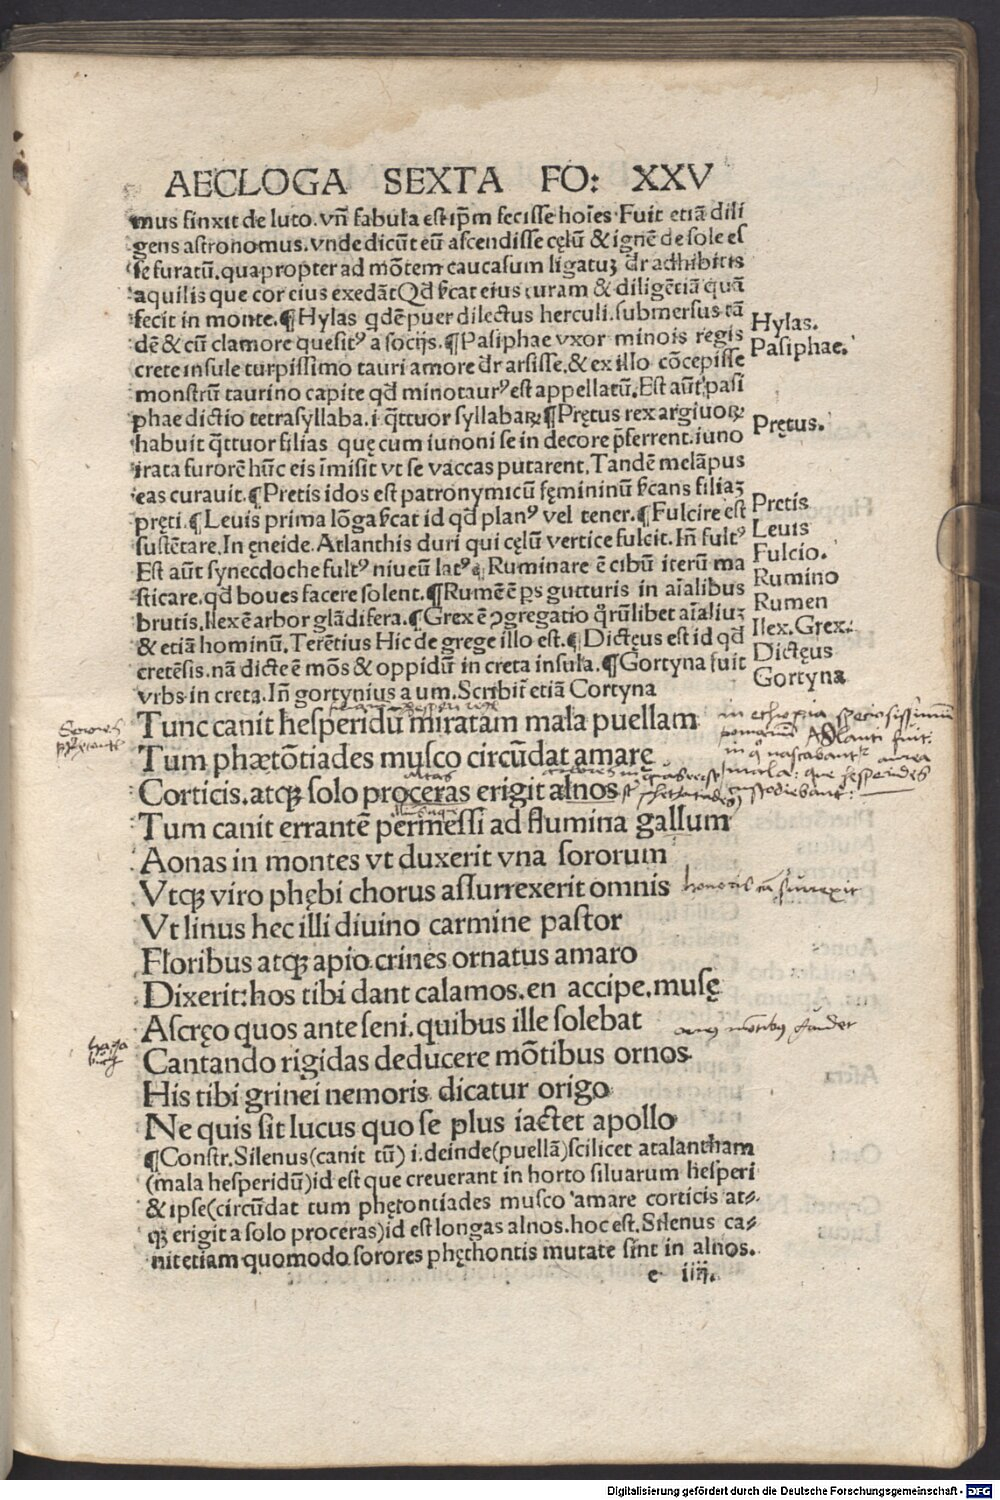 AECLOGA SEXTA FO: XXV
mus finxit de luto. vñ fabula est ip̄m fecisse hoīes Fuit etiā dili
gens astronomus. vnde dicūt eū ascendisse cęlū & ignē de sole es
se furatū. quapropter ad mōtem caucasum ligatuʒ dr̄ adhibitis
aquilis que cor eius exedāt Qđ sīcat eius curam & diligētiā quā
fecit in monte. ¶ Hylas qđē puer dilectus herculi. submersus tā
dē & cū clamore quesitꝰ a socijs. ¶ Pasiphae vxor minois regis
crete insule turpissimo tauri amore dr̄ arsisse. & ex illo cōcepisse
monstrū taurino capite qđ minotaurꝰ est appellatū. Est aūt pasi
phae dictio tetrasyllaba. i. q̄ttuor syllabaꝝ ¶ Prętus rex argiuoꝝ
habuit q̄ttuor filias quę cum iunoni se in decore p̄ferrent. iuno
irata furorē hūc eis īmisit vt se vaccas putarent. Tandē melāpus
eas curauit. ¶ Pretis idos est patronymicū fęmininū sīcans filiaʒ
pręti. ¶ Leuis prima lōga sīcat id qđ planꝰ vel tener. ¶ Fulcire est
sustētare. In ęneide. Atlanthis duri qui cęlū vertice fulcit. Iñ fultꝰ
Est aūt synecdoche fultꝰ niueū latꝰ ¶ Ruminare ē cibū iterū ma
sticare. qđ boues facere solent. ¶ Rumē ē ꝑs gutturis in aīalibus
brutis. Ilex ē arbor glādifera. ¶ Grex ē ꝯgregatio qͦrūlibet aīaliuʒ
& etiā hominū. Terētius Hic de grege illo est. ¶ Dictęus est id qđ
cretēsis. nā dicte ē mōs & oppidū in creta insula. ¶ Gortyna fuit
vrbs in creta. Iñ gortynius a um. Scribit̄ etiā Cortyna
Hylas.
Pasiphae.
Prętus.
Pretis
Leuis
Fulcio.
Rumino
Rumen
Ilex. Grex.
Dictęus
Gortyna
Tunc canit hesperidū miratam mala puellam
Tum phætōtiades musco circūdat amarę
altas
Corticis. atqꝫ solo proceras erigit alnos
Tum canit errantē permessi ad flumina gallum
Aonas in montes vt duxerit vna sororum
Vtqꝫ viro phębi chorus assurrexerit omnis
Vt linus hec illi diuino carmine pastor
Floribus atqꝫ apio crines ornatus amaro
Dixerit: hos tibi dant calamos. en accipe. musę
Ascręo quos ante seni. quibus ille solebat
Cantando rigidas deducere mōtibus ornos
His tibi grinei nemoris dicatur origo
Ne quis sit lucus quo se plus iactet apollo
¶ Constr. Silenus (canit tū) i. deinde (puellā) scilicet atalantham
(mala hesperidū) id est que creuerant in horto siluarum hesperi
& ipse (circūdat tum phętontiades musco amare corticis at⸗
qꝫ erigit a solo proceras) id est longas alnos. hoc est. Silenus ca⸗
nit etiam quomodo sorores phęthontis mutate sint in alnos.
e iiij.
Digitalisierung gefördert durch die Deutsche Forschungsgemeinschaft - DFG